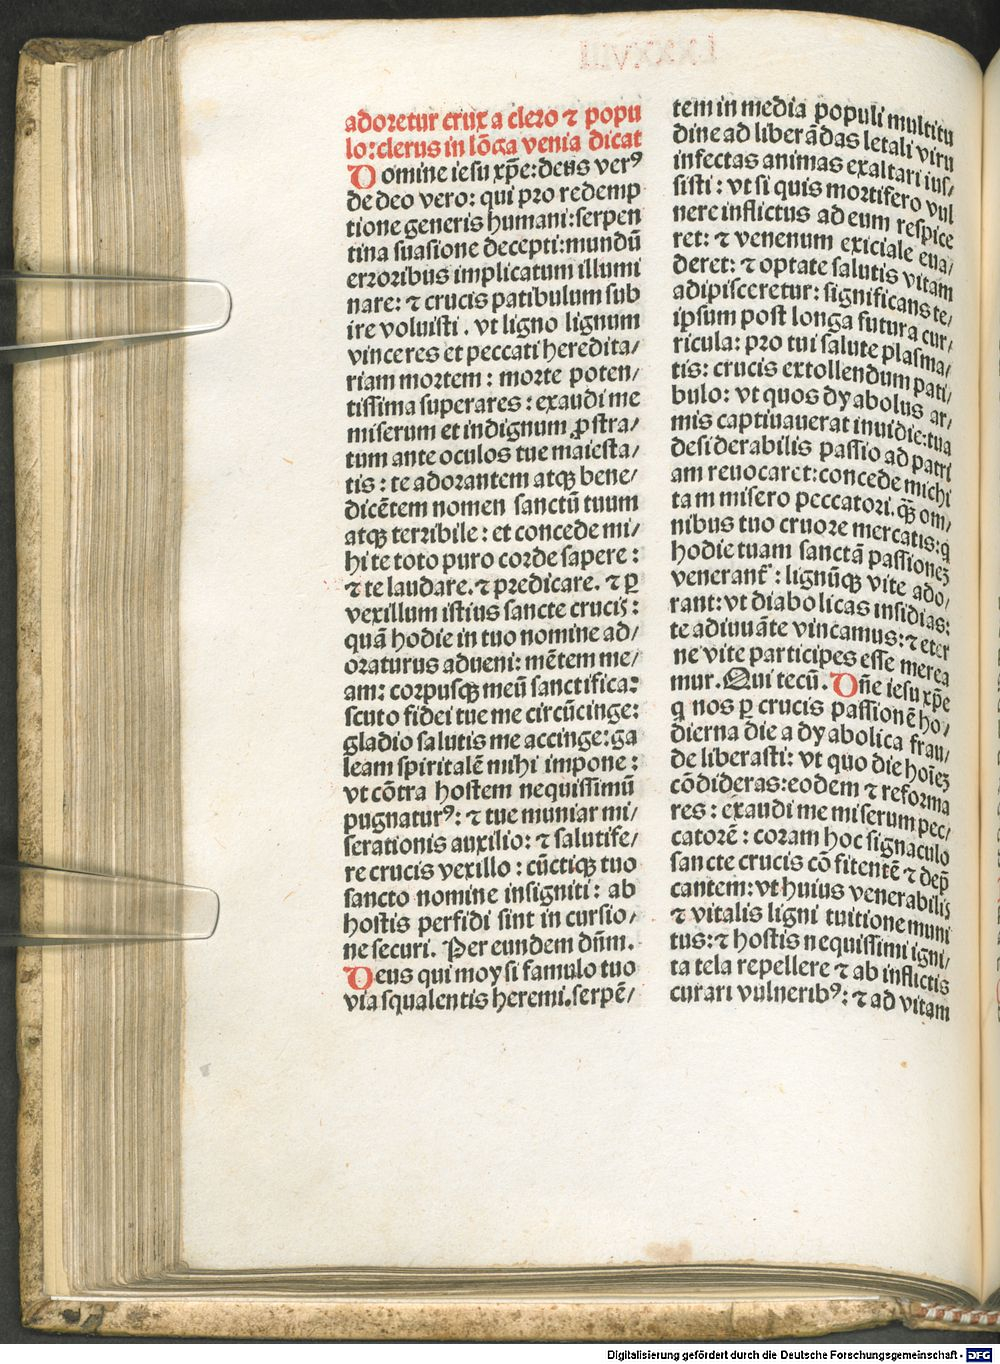 adoretur crux a clero ⁊ popu
lo: clerus in lōga venia dicat
Domine iesu xp̄e: deus verꝰ
de deo vero: qui pro redemp
tione generis humani: serpen
tina suasione decepti: mundū
erroribus implicatum illumi
nare: ⁊ crucis patibulum sub
ire voluisti. vt ligno lignum
vinceres et peccati heredita/
riam mortem: morte poten/
tissima superares: exaudi me
miserum et indignum ꝓstra/
tum ante oculos tue maiesta/
tis: te adorantem atqꝫ bene/
dicētem nomen sanctū tuum
atqꝫ terribile: et concede mi/
hi te toto puro corde sapere:
⁊ te laudare. ⁊ predicare. ⁊ ꝑ
vexillum istius sancte crucis:
quā hodie in tuo nomine ad/
oraturus adueni: mētem me/
am: corpusqꝫ meū sanctifica:
scuto fidei tue me circūcinge:
gladio salutis me accinge: ga
leam spiritalē mihi impone:
vt cōtra hostem nequissimū
pugnaturꝰ: ⁊ tue muniar mi/
serationis auxilio: ⁊ salutife/
re crucis vexillo: cūctiqꝫ tuo
sancto nomine insigniti: ab
hostis perfidi sint in cursio/
ne securi. Per eundem dn̄m.
Deus qui moysi famulo tuo
via squalentis heremi. serpē/
tem in media populi multitu
dine ad liberādas letali viru
infectas animas exaltari ius/
sisti: vt si quis mortifero vul
nere inflictus ad eum respice
ret: ⁊ venenum exiciale eua/
deret: ⁊ optate salutis vitam
adipisceretur: significans te/
ipsum post longa futura cur/
ricula: pro tui salute plasma/
tis: crucis extollendum pati/
bulo: vt quos dyabolus ar/
mis captiuauerat inuidie: tua
desiderabilis passio ad patri
am reuocaret: concede michi
tam misero peccatori. qꝫ om/
nibus tuo cruore mercatis: q
hodie tuam sanctā passionez
venerant᷑: lignūqꝫ vite ado/
rant: vt diabolicas insidias:
te adiuuāte vincamus: ⁊ eter
ne vite participes esse merea
mur. Qui tecū. Dn̄e iesu xp̄e
q nos ꝑ crucis passionē ho/
dierna die a dyabolica frau/
de liberasti: vt quo die hoīez
cōdideras: eodem ⁊ reforma
res: exaudi me miserum pec/
catorē: coram hoc signaculo
sancte crucis cōfitentē ⁊ dep̄
cantem: vt huius venerabilis
⁊ vitalis ligni tuitione muni
tus: ⁊ hostis nequissimi igni/
ta tela repellere ⁊ ab inflictis
curari vulneribꝰ: ⁊ ad vitam
Digitalisierung gefördert durch die Deutsche Forschungsgemeinschaft - DFG